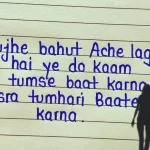 ujhe bahut Ache lag
hai ye do kaam
tumse baat karna
sra tumhari Baate
karna.